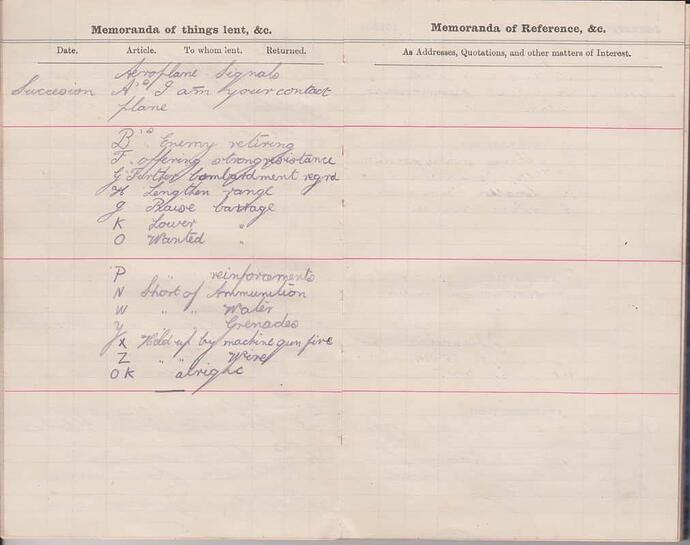 Memoranda of things lent, &c.
Date. Article. To whom lent. Returned.
Aeroplane Signals
Succesion A's I am your contact
plane
B's Enemy retiring
F. offering strong resistance
G Further bombardment reqrd
H Lengthen range
J Raise barrage
K Lower "
O Wanted "
P " reinforcements
N Short of Ammunition
W " " Water
Y Grenades
X Held up by machine gun fire
Z " " Wire
OK alright
Memoranda of Reference, &c.
As Addresses, Quotations, and other matters of Interest.